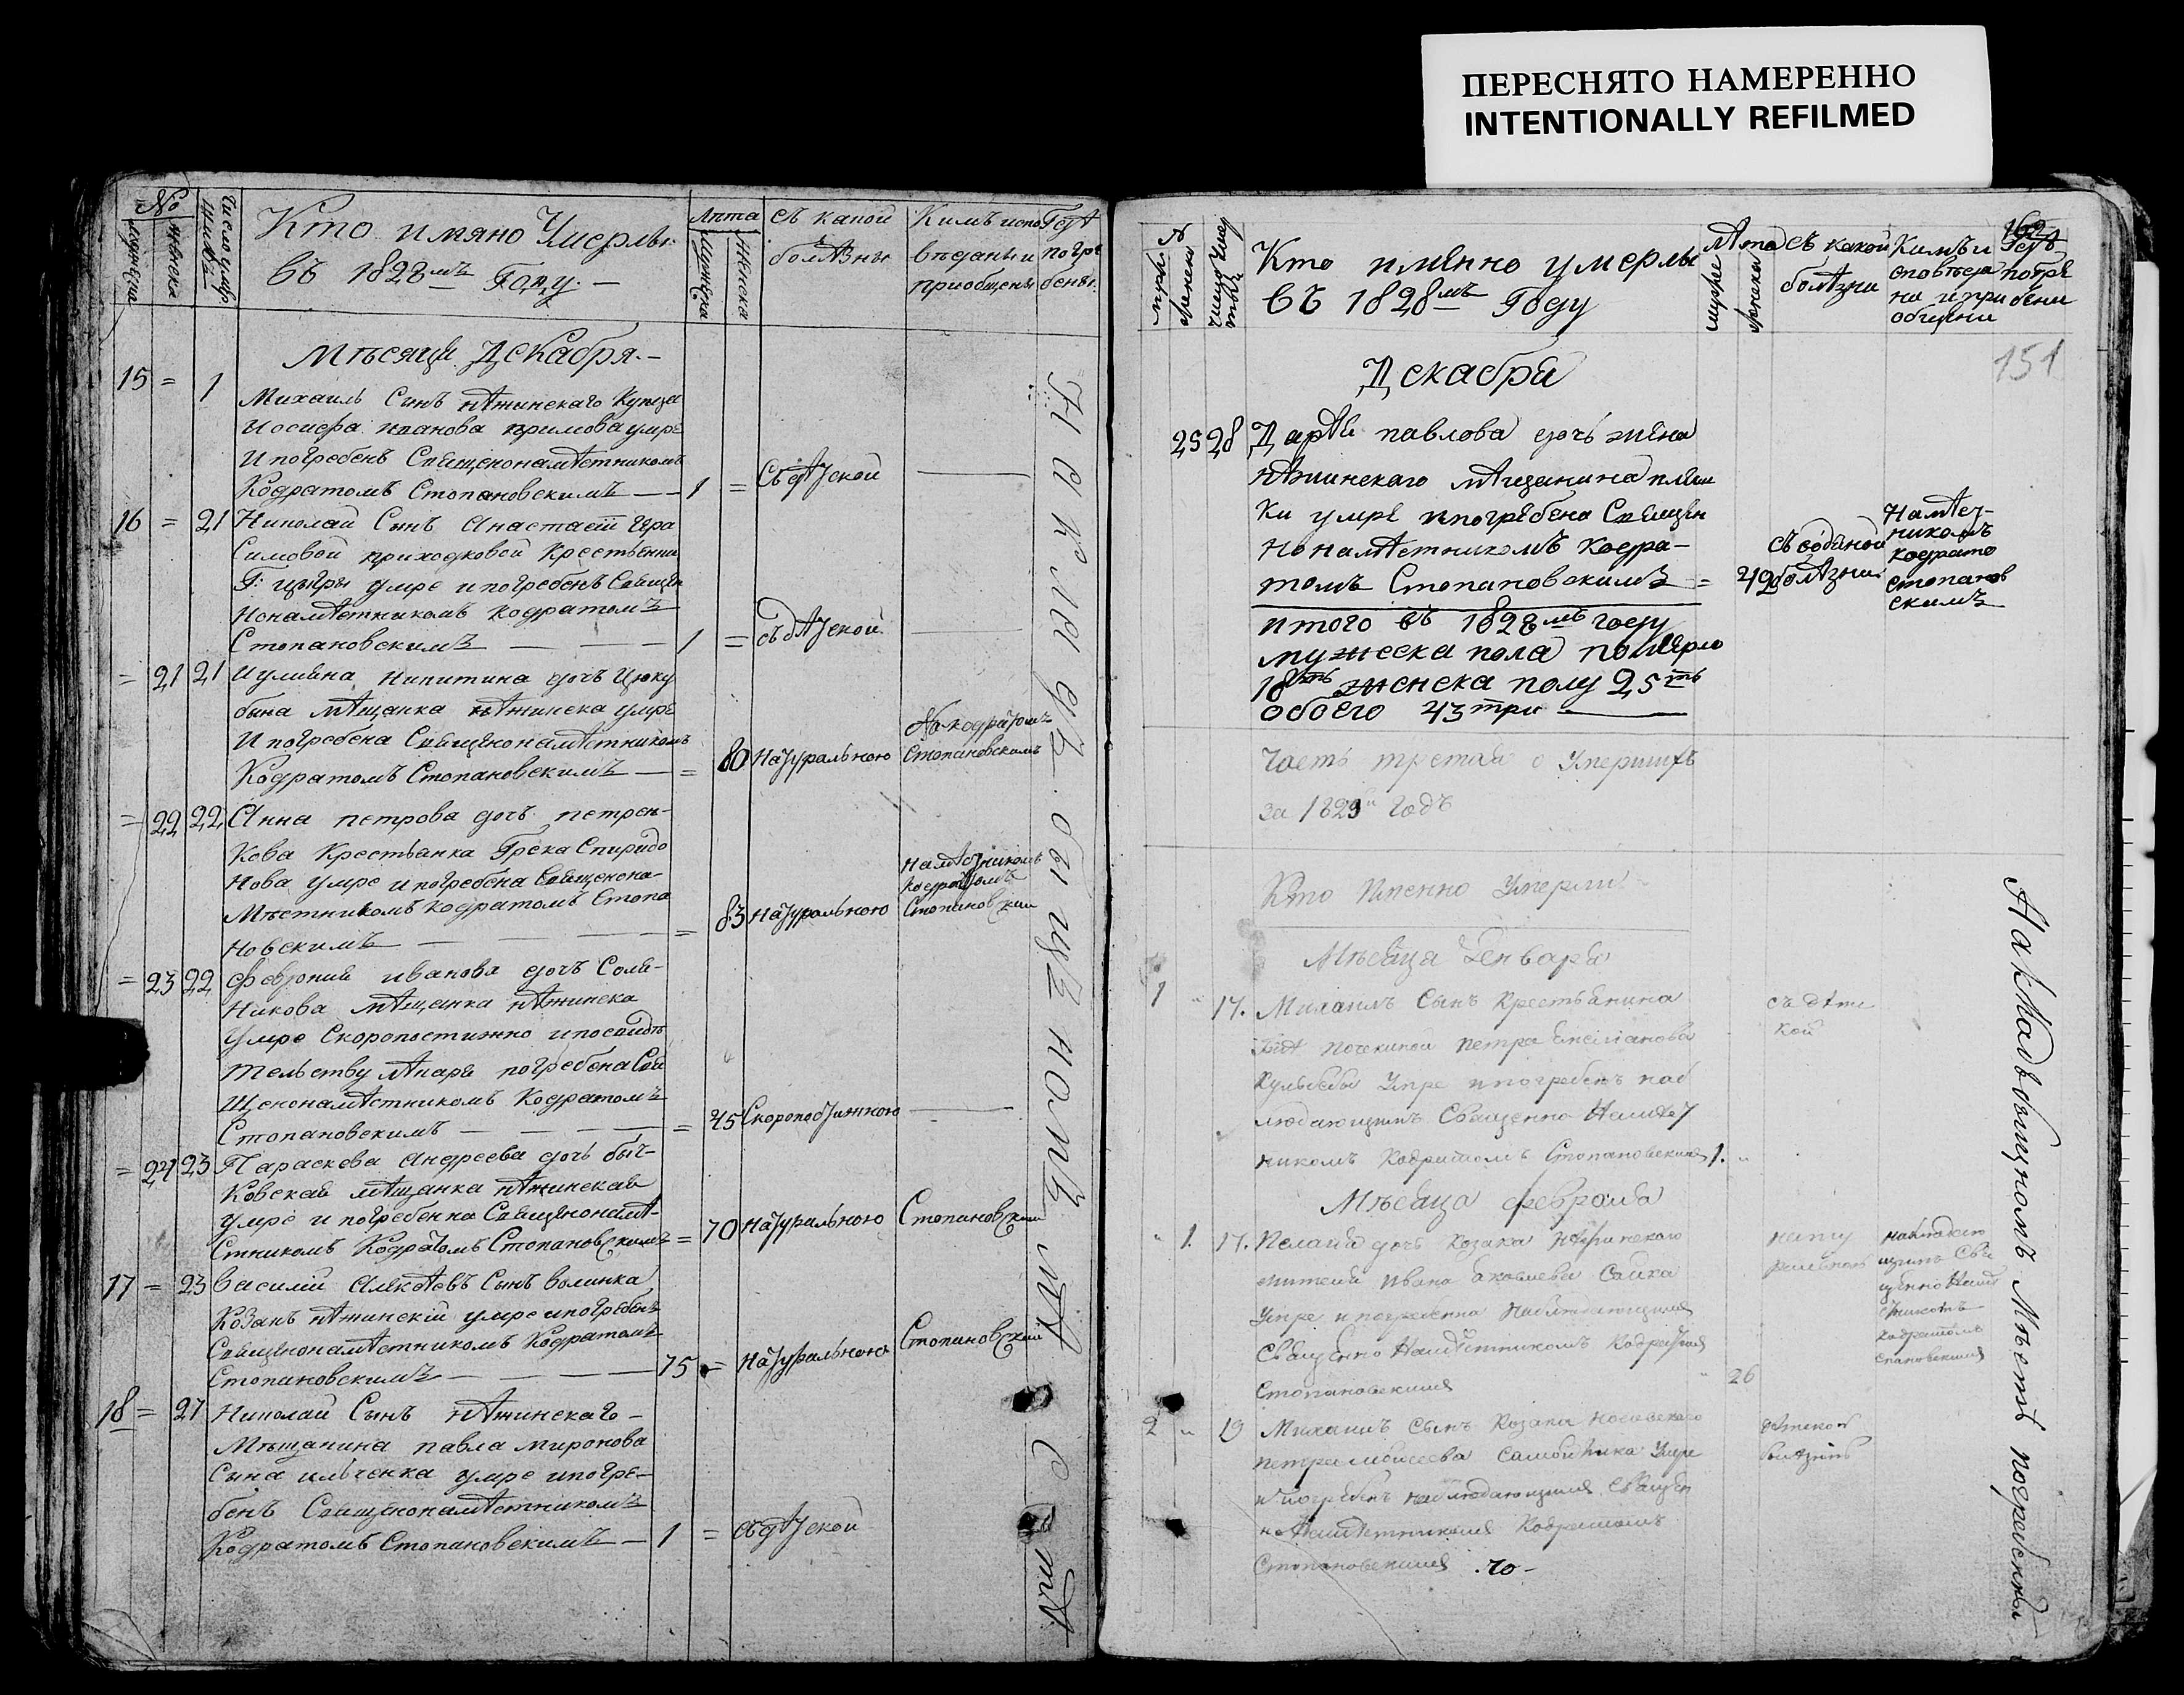 ПЕРЕСНЯТО НАМЕРЕННО
INTENTIONALLY REFILMED
№
мужеска
женска
Число умер
Кто имяно Умерлы
въ 1828мъ Году. —
лѣта
мужеска
женска
съ какой
болѣзны
Кимъ испо
вѣданы и
приобщены
Гдѣ
погре
бены.
Мѣсяця Декабря. —
15 = 1
Михаилъ Сынъ нѣжинскаго Купца
Иосифа иванова
умре
И погребенъ Священонамѣстникомъ
Кодратомъ Стопановскимъ — — 1 = Съ дѣтской
16 = 21 Николай Сынъ Анастасіи Гера
Симовой приходковой Крестьянки
Г: цыгры умре и погребенъ Священ
Нонамѣстникомъ кодратомъ
Стопановскимъ — — — 1 = съ дѣтской
= 21 21 Иулияна Никитина дочь Цюку
бына мѣщанка нѣжинска умре
И погребена Священонамѣстникомъ
Кодратомъ Стопановскимъ — = 80 натурального
кодратомъ
Стопановскимъ
= 22 22 Анна петрова дочь петрен-
Кова Крестьянка Грека Спиридо
Нова умре и погребена Священона-
Мѣстникомъ кодратомъ Стопа
Новскимъ — — — = 83 натурального
Намѣстникомъ
кодратомъ
Стопановским
= 23 22 Феврония иванова дочь Соля-
Никова мѣщанка нѣжинска
Умре Скоропостижно и посвидѣ
тельству лѣкаря погребена Свя
Щенонамѣстникомъ Кодратомъ
Стопановскимъ — — — = 45 Скоропостижною
= 24 23 Параскева Андреева дочь быч-
Ковская мѣщанка нѣжинская
умре и погребенна Священонамѣ-
Стникомъ Кодратомъ Стопановскимъ = 70 натурального Стопановским
17 = 23 Василий Алексѣевъ Сынъ волинка
Козакъ нѣжинскій умре и погребенъ
Священонамѣстникомъ Кодратомъ
Стопановскимъ — — — 75 = натурального Стопановский
18 = 27 Николай Сынъ нѣжинскаго —
Мѣщанина павла миронова
Сына ильченка умре и погре-
бенъ Священонамѣстникомъ
Кодратомъ Стопановскимъ — 1 = съ дѣтской
На кладъбищѣ номъ мѣстѣ
№
Кто имянно умерлы
въ 1828мъ Году
Лѣта
съ какой
болѣзни
Кимъ и
сповѣда
ни и при
общени
162
Гдѣ
погре
бени
151
Декабря
25 28 Дарья павлова дочь жена
нѣжинскаго мѣщанина
ки умре и погребена Священ
Нонамѣстникомъ Кодра-
томъ Стопановскимъ = 49
съ водяной
болѣзни
Намѣст-
никомъ
кодрато
Стопанов
скимъ
итого въ 1828мъ году
мужеска пола померло
18ть женска полу 25ть
обоего 43 три —
Часть третая о Умершихъ
за 1829й годъ
Кто Именно Умерли
Мѣсяца Генваря
1 17. Михаилъ Сынъ Крестьянина
петра
Умре и погребенъ наб
людающимъ Священно Намѣст
никомъ Кодратомъ Стопановскимъ 1.
съ дѣтс
кой
Мѣсяца февраля
1. 17. Пелагия дочь Козака Нѣжинскаго
жителя Ивана Яковлева Сайка
Умре и погребенна Наблюдающимъ
Священно Намѣстникомъ Кодратомъ
Стопановскимъ 26
нату
ральной
наблюдаю
щимъ Свя
щенно Намѣ
стникомъ
Кодратомъ
Стопановскимъ
2 19 Михаилъ Сынъ Козака Носовскаго
петра моисеева Умре
и погребенъ наблюдающимъ Священ
но Намѣстникомъ Кодратомъ
Стопановскимъ
дѣтской
болѣзнію
На Кладъбищномъ Мѣстѣ погребенны